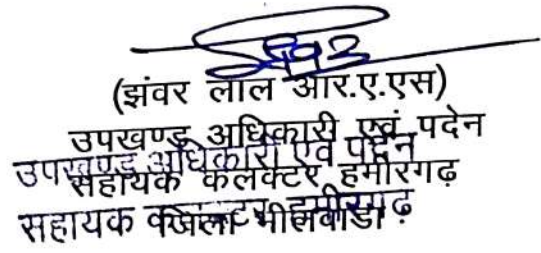 (झंवर लाल आर.ए.एस)
उपखण्ड अधिकारी एवं पदेन
उपखण्ड अधिकारी एवं पदेन
सहायक कलक्टर हमीरगढ़
सहायक कलक्टर हमीरगढ़
जिला भीलवाडा